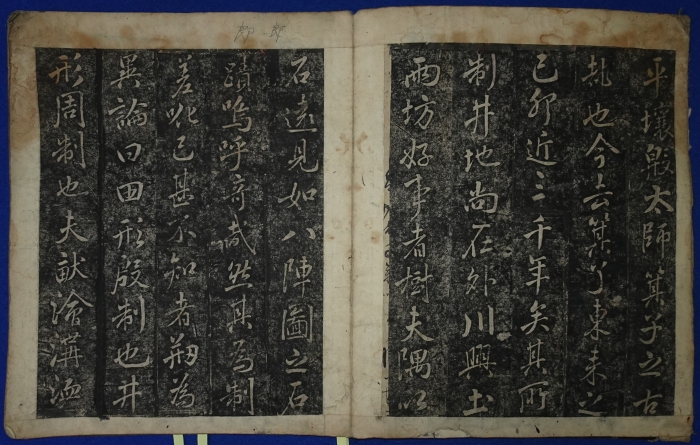 平壤殷太師箕子之古
也今去箕子東来之
己卯近三千年矣其所
制井地尚在外川與土
兩坊好事者樹夫隅以
石遠見如八陣圖之石
蹟嗚呼奇哉然其為制
差吪已甚不知者剏為
異論曰田形殷制也井
形周制也夫畎澮溝洫